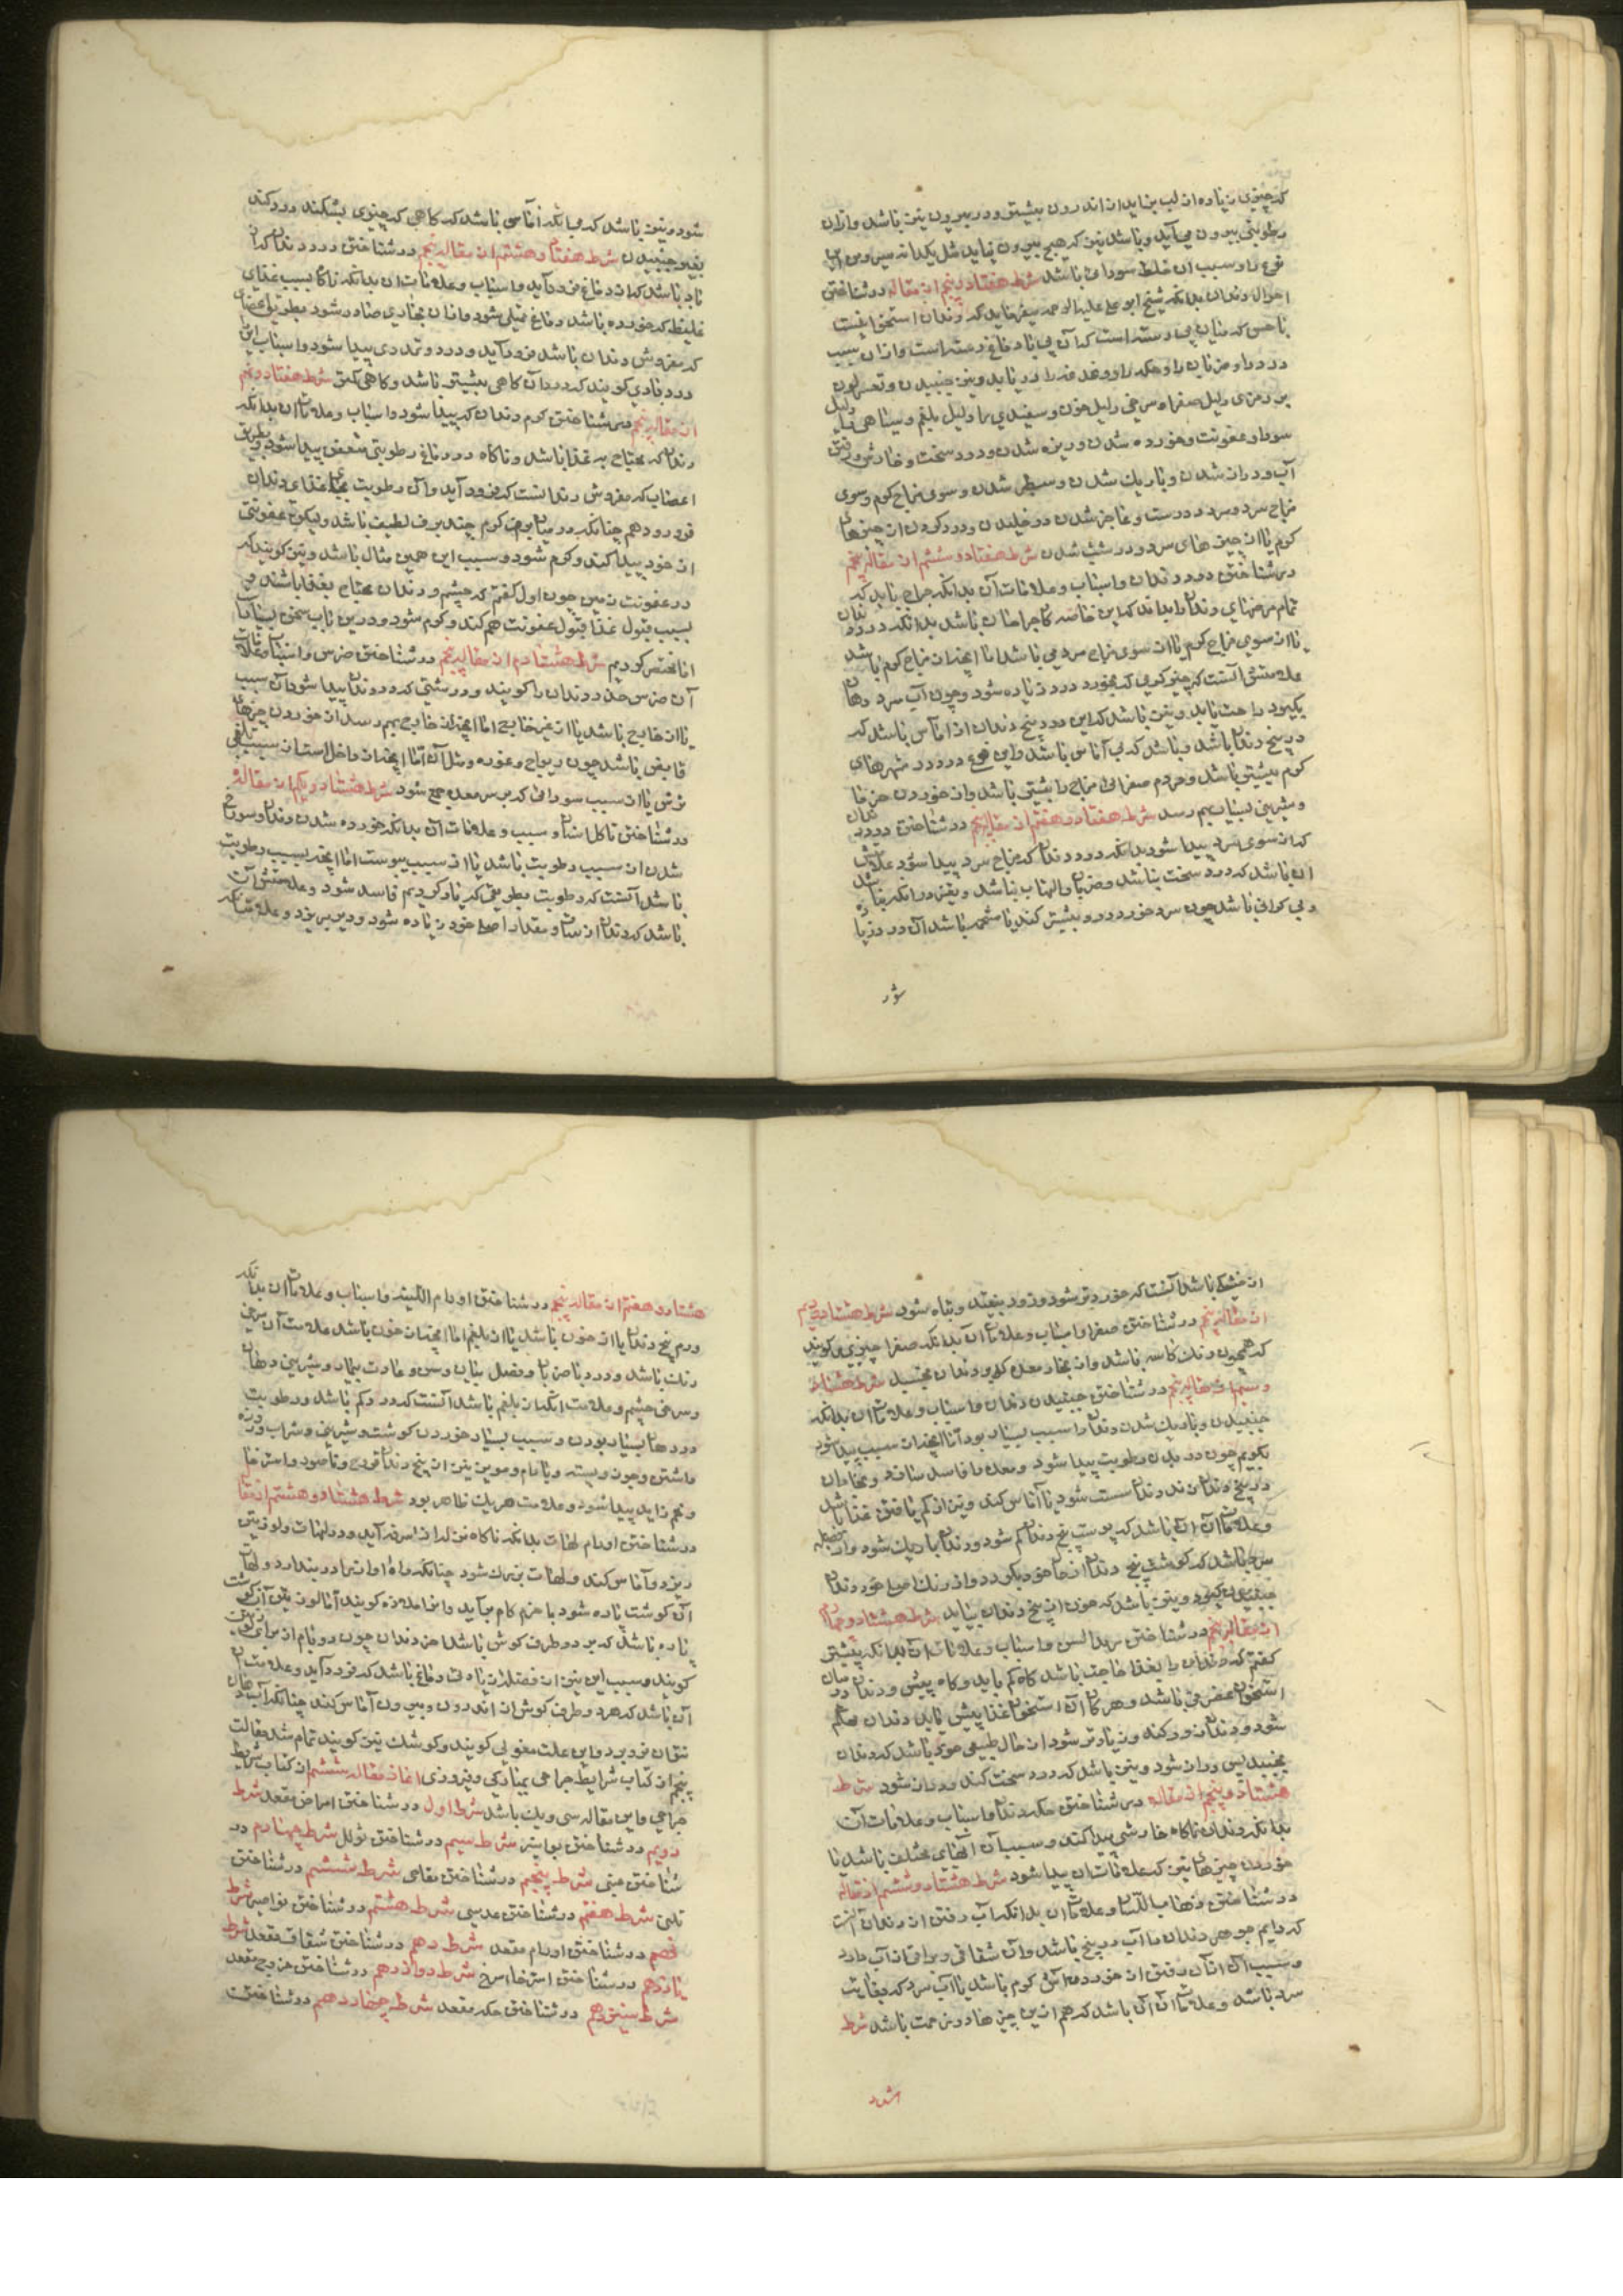 که چیزی زیاده از لب بر آید از اندرون بیشتر و در بیرون نیز باشد و از آن
رطوبتی بیرون می آید و باشد نیز که هیچ بیرون نیاید مثل یکدانه
نوع را و سبب آن خلط سوداوی باشد شرط هفتاد و پنجم از مقاله در شناختن
احوال دندان بدانکه شیخ ابو علی علیه الرحمه میفرماید که دندان استخوانیست
با حس که میان پی رسته است که آن پی با دماغ رسته است و از آن سبب
درد را و ضربان را و حکه را و دغدغه را در یابد و نیز جنبیدن و تغیر لون
بر زردی دلیل صفرا و سرخی دلیل خون و سفیدی را دلیل بلغم و سیاهی دلیل
سودا و عفونت و خورده شدن و ریزه شدن و درد سخت و خارش و رفتن
آب و دراز شدن و باریک شدن و سطبر شدن و سوی مزاج گرم و سوی
مزاج سرد و سرد و درست و عاجز شدن در خلیدن و درد کردن از چیزهای
گرم یا از چیزهای سرد و درشت شدن شرط هفتاد و ششم از مقاله پنجم
در شناختن درد دندان و اسباب و علامات آن بدانکه جراح باید که
تمام مرضهای دندان را بداند که این خاصه کار جراحان باشد بدانکه درد دندان
یا از سوی مزاج گرم یا از سوی مزاج سرد می باشد اما آنچه از مزاج گرم باشد
علامتش آنست که چیز گرمی که بخورد درد زیاده شود و چون آب سرد دهان
بگیرد راحت یابد و نیز باشد که این درد بیخ دندان از آماس باشد که
در بیخ دندان باشد و باشد که بی آماس باشد و این نوع درد در شهرهای
گرم بیشتر باشد و مردم صفرایی مزاج را بیشتر باشد و از خوردن خرما
و شیرینی بسیار بهم رسد شرط هفتاد و هفتم از مقاله پنجم در شناختن درد دندان
که از سوی سرد پیدا شود بدانکه درد دندان که مزاج سرد پیدا شود علامتش
آن باشد که درد سخت نباشد و ضربان و التهاب نباشد و تغیر در رنگ نباشد
و بی گرانی باشد چون سرد خورد درد بیشتر کند یا مستمر باشد آن درد زیاده
شود
شود و نیز باشد که بی آنکه آماسی باشد که گاهی که چیزی بشکند درد کند
بغیر جنبیدن شرط هفتاد و هشتم از مقاله پنجم در شناختن درد دندان که از
باد باشد که از دماغ فرود آید و اسباب و علامات آن بدانکه ناگاه بسبب غذای
غلیظ که خورده باشد دماغ ممتلی شود و از آن بخاری صادر شود بطریق اعضای
که مفروش دندان باشد فرود آید و درد و تمددی پیدا شود و اسباب این
درد بادی گویند که درد آن گاهی بیشتر باشد و گاهی کمتر شرط هفتاد و نهم
از مقاله پنجم در شناختن کرم دندان که پیدا شود و اسباب و علامات آن بدانکه
دندان که محتاج به غذا باشد و ناگاه در دماغ رطوبتی متعفن پیدا شود بطریق
اعصاب که مفروش دندانست که فرود آید و آن رطوبت بجای غذای دندان
فرو رود هم چنانکه در میان برف کرم چند برف لطیف باشد ولیکن عفونتی
از خود پیدا کند و کرم شود و سبب این همین مثال باشد و نیز گویند که
در عفونت زمین چون اول گفتم که چشم و دندان محتاج بغذا باشند و
بسبب قبول غذا قبول عفونت هم کند و کرم شود و درین باب سخن بسیار است
اما مختصر کردیم شرط هشتادم از مقاله پنجم در شناختن ضرس و اسباب و علامات
آن ضرس خدر دندان را گویند و درشتی که در دندان پیدا شود آن سبب
یا از خارج باشد یا از غیر خارج اما آنچه از خارج بهم رسد از خوردن چیزهای
قابض باشد چون ریواج و غوره و مثل آن اما آنچه از داخل است از سبب قی
ترش یا از سبب سوداوی که بر سر معده جمع شود شرط هشتاد و یکم از مقاله
در شناختن تاکل اسنان و سبب و علامات آن بدانکه خورده شدن دندان و سوراخ
شدن از سبب رطوبت باشد یا از سبب یبوست اما آنچه بسبب رطوبت
باشد آنست که رطوبت بطریقی که یاد کردیم فاسد شود و علامتش آن
باشد که دندان از سان و مقدار اصلی خود زیاده شود و دیر بریزد و علامت آنکه
از خشکی باشد آنست که خوردتر شود و زود بیفتد و تباه شود شرط هشتاد و دویم
از مقاله پنجم در شناختن صفرا و اسباب و علامات آن بدانکه صفرا چیزی را گویند
که همچون رنگ کاسه باشد و از بخار معده که بر دندان بچسبد شرط هشتاد
و سیم از مقاله پنجم در شناختن جنبیدن دندان و اسباب و علامات آن بدانکه
جنبیدن و باریک شدن دندان را سبب بسیار بود اما آنچه از سبب پیدا شود
بگویم چون در بدن رطوبت پیدا شود و معده را فاسد سازد و بخار آن
در بیخ دندان زند دندان سست شود یا آماس کند و نیز از کم یافتن غذا باشد
و علامات آن آن باشد که پوست بیخ دندان کم شود و دندان باریک شود و آن
سرخ باشد که گوشت بیخ دندان از جا خود بگردد و از رنگ اصلی خود دندان
جنبیدن گیرد و نیز باشد که خون از بیخ دندان بیاید شرط هشتاد و چهارم
از مقاله پنجم در شناختن و اسباب و علامات آن بدانکه پیشتر
گفتم که دندان را بغذا حاجت باشد گاه کم یابد و گاه بیش و دندان در میان
استخوان عضوی باشد و هرگاه آن استخوان غذا بیش یابد دندان محکم
شود و دندان زور کند و زیادتر شود از حال طبیعی خود باشد که دندان
بجنبد پس دراز شود و نیز باشد که درد سخت کند و دراز شود شرط
هشتاد و پنجم از مقاله در شناختن حکه دندان و اسباب و علامات آن
بدانکه دندان ناگاه خارشی پیدا کند و سبب آن آبهای مختلف باشد یا
خوردن چیزهای تیز که علامات آن پیدا شود شرط هشتاد و ششم از مقاله
در شناختن ذهاب الاسنان و علامات آن بدانکه آب رفتن از دندان آنست
که دایم جوهر دندان را آب در بیخ باشد و آن شفافی و براقی از آب دارد
و سبب آن رفتن از خوردن آش گرم باشد یا آب سرد که بغایت
سرد باشد و علامات آن آن باشد که هم ازین چیزها در زحمت باشد شرط
هشتاد و هفتم از مقاله پنجم در شناختن اورام اللثه و اسباب و علامات آن بدانکه
ورم بیخ دندان یا از خون باشد یا از بلغم اما آنچه از خون باشد علامت آن سرخی
رنگ باشد و درد با ضربان و فصل بهار و سن و عادت بیمار و شیرینی دهان
و سرخی چشم و علامت آنکه از بلغم باشد آنست که درد کم باشد و رطوبت
در دهان بسیار بودن و سبب بسیار خوردن گوشت و شیرینی و شراب
و لحم زاید پیدا شود و علامت هر یک ظاهر بود شرط هشتاد و هشتم از مقاله
در شناختن اورام لهات بدانکه ناگاه نزله از سر فرو آید و در لهات و لوزتین
ریزد و آماس کند و لهات بزرگ شود چنانکه راه آواز را در بندارد و لهات
آن گوشت پاره شود
پاره باشد که بر دو طرف گوش باشد
گویند و سبب این نیز از فضله زیادتی دماغ باشد که فرود آید و علامت آن
آن باشد که هر دو طرف گوش از اندرون و بیرون آماس کند چنانکه آب دهان
نتوان فرو برد و این علت مغولی گویند و گوشک نیز گویند تمام شد مقالت
پنجم از کتاب شرایط جراحی بمبارکی و فیروزی آغاز مقاله ششم از کتاب شرایط
جراحی و این مقاله سی و یک باشد شرط اول در شناختن امراض مقعد شرط
دویم در شناختن بواسیر شرط سیم در شناختن ثولل شرط چهارم در
شناختن عنبی شرط پنجم در شناختن نفاخی شرط ششم در شناختن
تلی شرط هفتم در شناختن عدسی شرط هشتم در شناختن نواصیر شرط
نهم در شناختن اورام مقعد شرط دهم در شناختن شقاق مقعد شرط
یازدهم در شناختن استرخا سرخ شرط دوازدهم در شناختن خروج مقعد
شرط سیزدهم در شناختن حکه مقعد شرط چهاردهم در شناخت